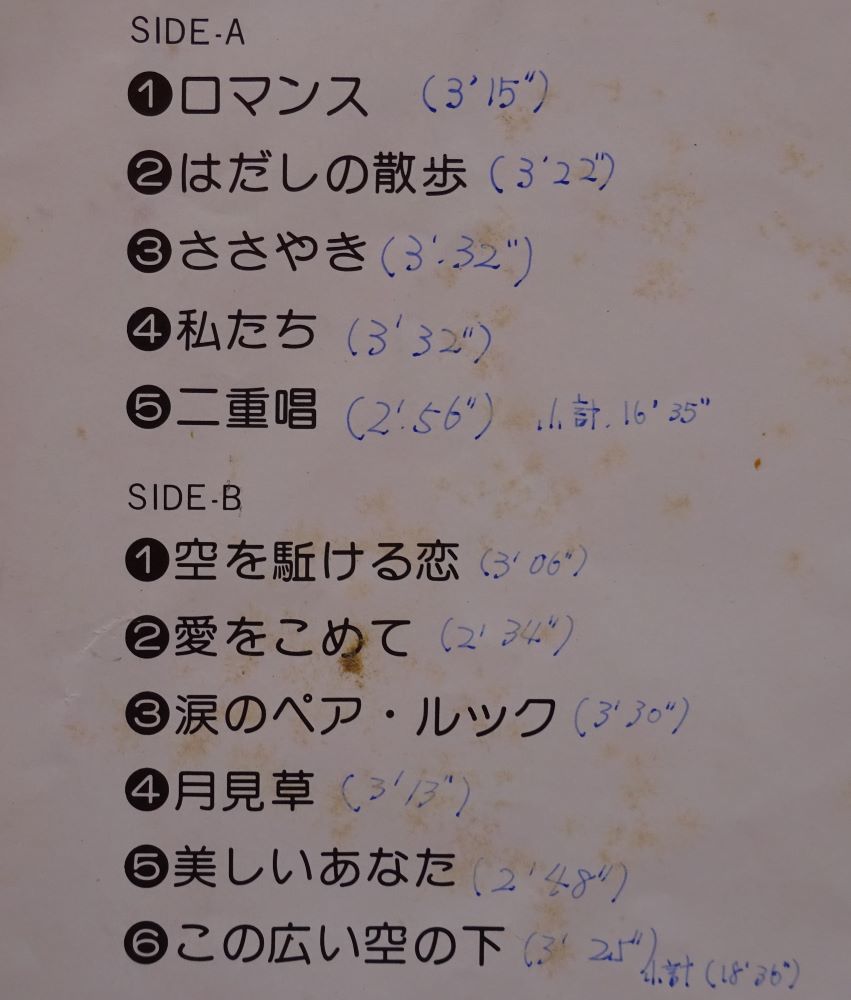 SIDE-A
❶ロマンス (3'15")
❷はだしの散歩 (3'22")
❸ささやき (3'.32")
❹私たち (3'32")
❺二重唱 (2'.56") 小計.16'35"
SIDE-B
❶空を駈ける恋 (3'06")
❷愛をこめて (2'34")
❸涙のペア・ルック (3'30")
❹月見草 (3'13")
❺美しいあなた (2'48")
❻この広い空の下 (3'25")
小計 (18'36")